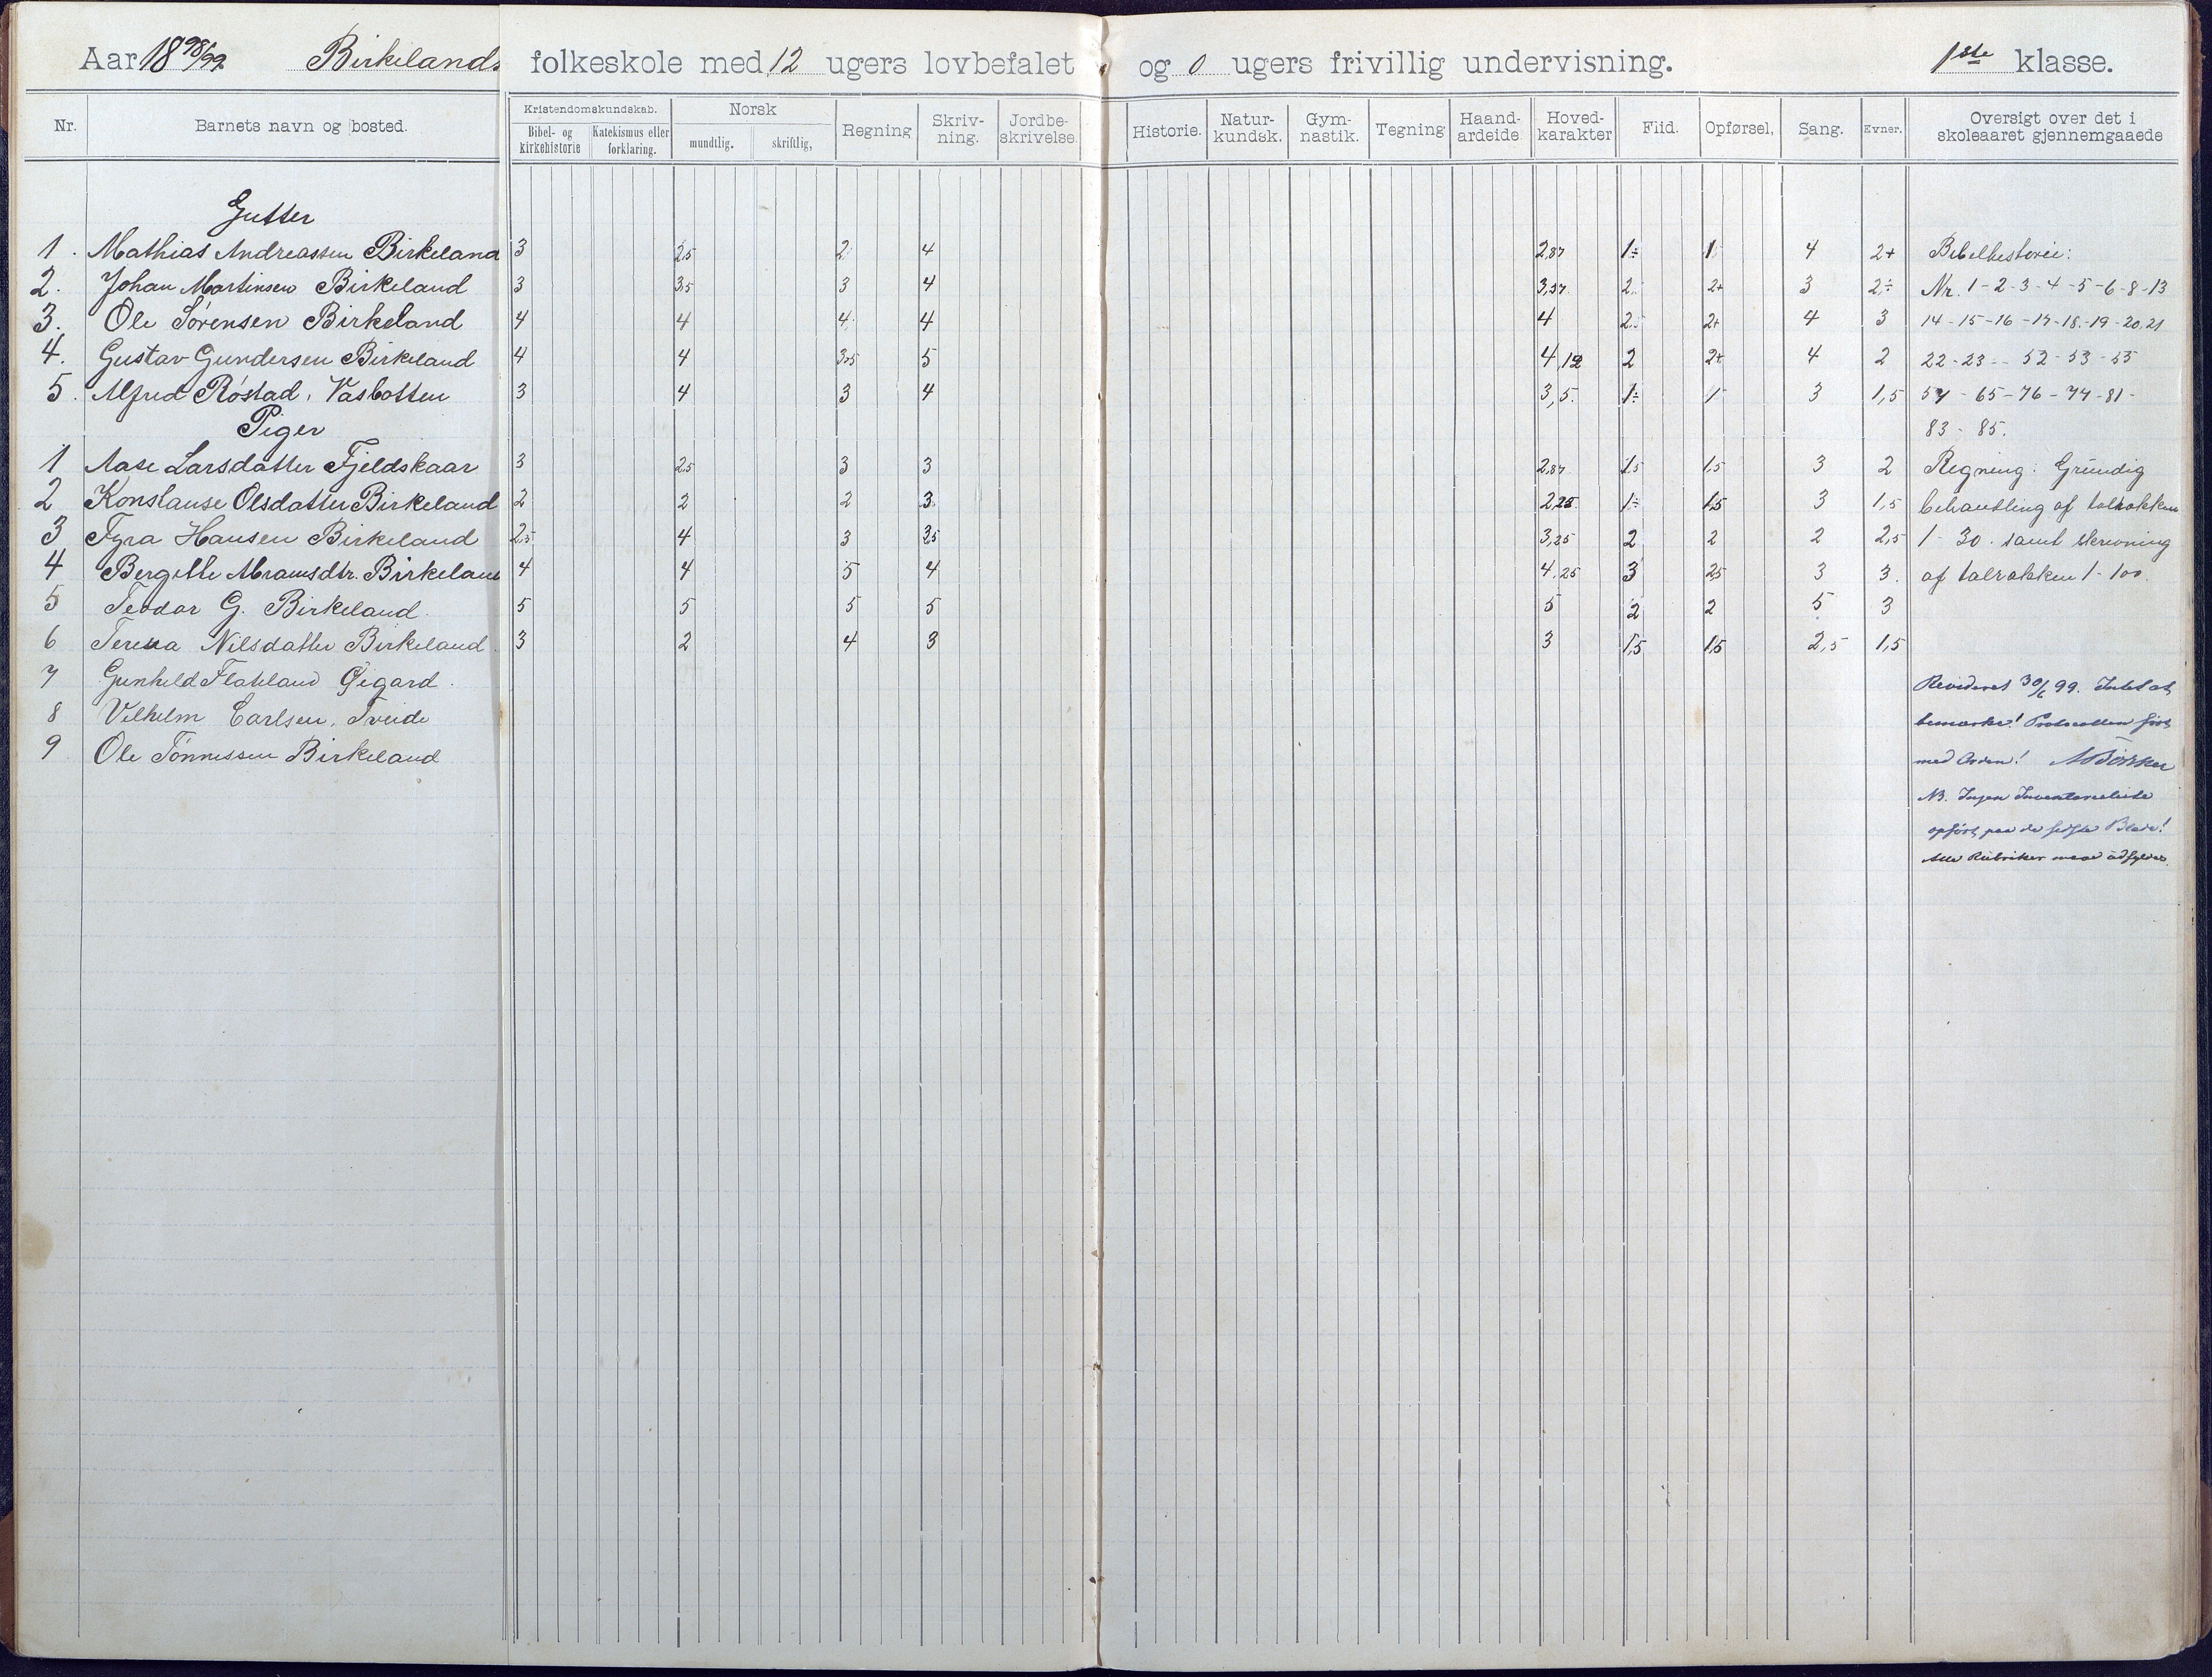 Aar 1898/99. Birkelands folkeskole med 12 ugers lovbefalet og 0 ugers frivillig undervisning. 1ste klasse.
Nr. Barnets navn og bosted. Kristendomskundskab. Bibel- og kirkehistorie Katekismus eller forklaring. Norsk mundtlig. skriftlig, Regning Skriv-ning. Jordbe-skrivelse. Historie. Natur-kundsk. Gym-nastik. Tegning Haand-arbeide Hoved-karakter Flid. Opførsel, Sang. Evner. Oversigt over det i skoleaaret gjennemgaaede
Gutter
1. Mathias Andreassen Birkeland 3 2,5 2 4 2,87 1÷ 1 4 2+ Bibelhistorie:
2. Johan Martinsen Birkeland 3 3,5 3 4 3,37 2 2+ 3 2÷ Nr. 1-2-3-4-5-6-8-13
3. Ole Sørensen Birkeland 4 4 4 4 4 2,5 2+ 4 3 14-15-16-17-18-19-20.21
4. Gustav Gundersen Birkeland 4 4 3,5 5 4,12 2 2+ 4 2 22-23-52-53-55
5. Alfred Røstad, Vasbotten 3 4 3 4 3,5. 1÷ 1 3 1,5 57-65-76-77-81-
Piger 83-85.
1 Aase Larsdatter Fjeldskaar 3 2,5 3 3 2,87 1,5 1,5 3 2 Regning: Grundig
2 Konstanse Olsdatter Birkeland 2 2 2 3 2,25 1÷ 1,5 3 1,5 behandling af talrækken
3 Fyra Hansen Birkeland 2,5 4 3 3,5 3,25 2 2 2 2,5 1-30. samt skrivning
4 Bergitte Abramsdtr. Birkeland 4 4 5 4 4,25 3 2,5 3 3. af talrækken 1-100.
5 Teodor G. Birkeland. 5 5 5 5 5 2 2 5 3
6 Teresa Nilsdatter Birkeland. 3 2 4 3 3 1,5 1,5 2,5 1,5
7 Gunhild Flakeland Øigard. Revideret 30/6 99. Intet at
8 Vilhelm Carlsen, Tveide bemærke! Protocollen ført
9 Ole Tønnessen Birkeland med Orden!
NB. Ingen Inventarieliste
opført paa de sidste Blade!
Alle Rubriker maa udfyldes.